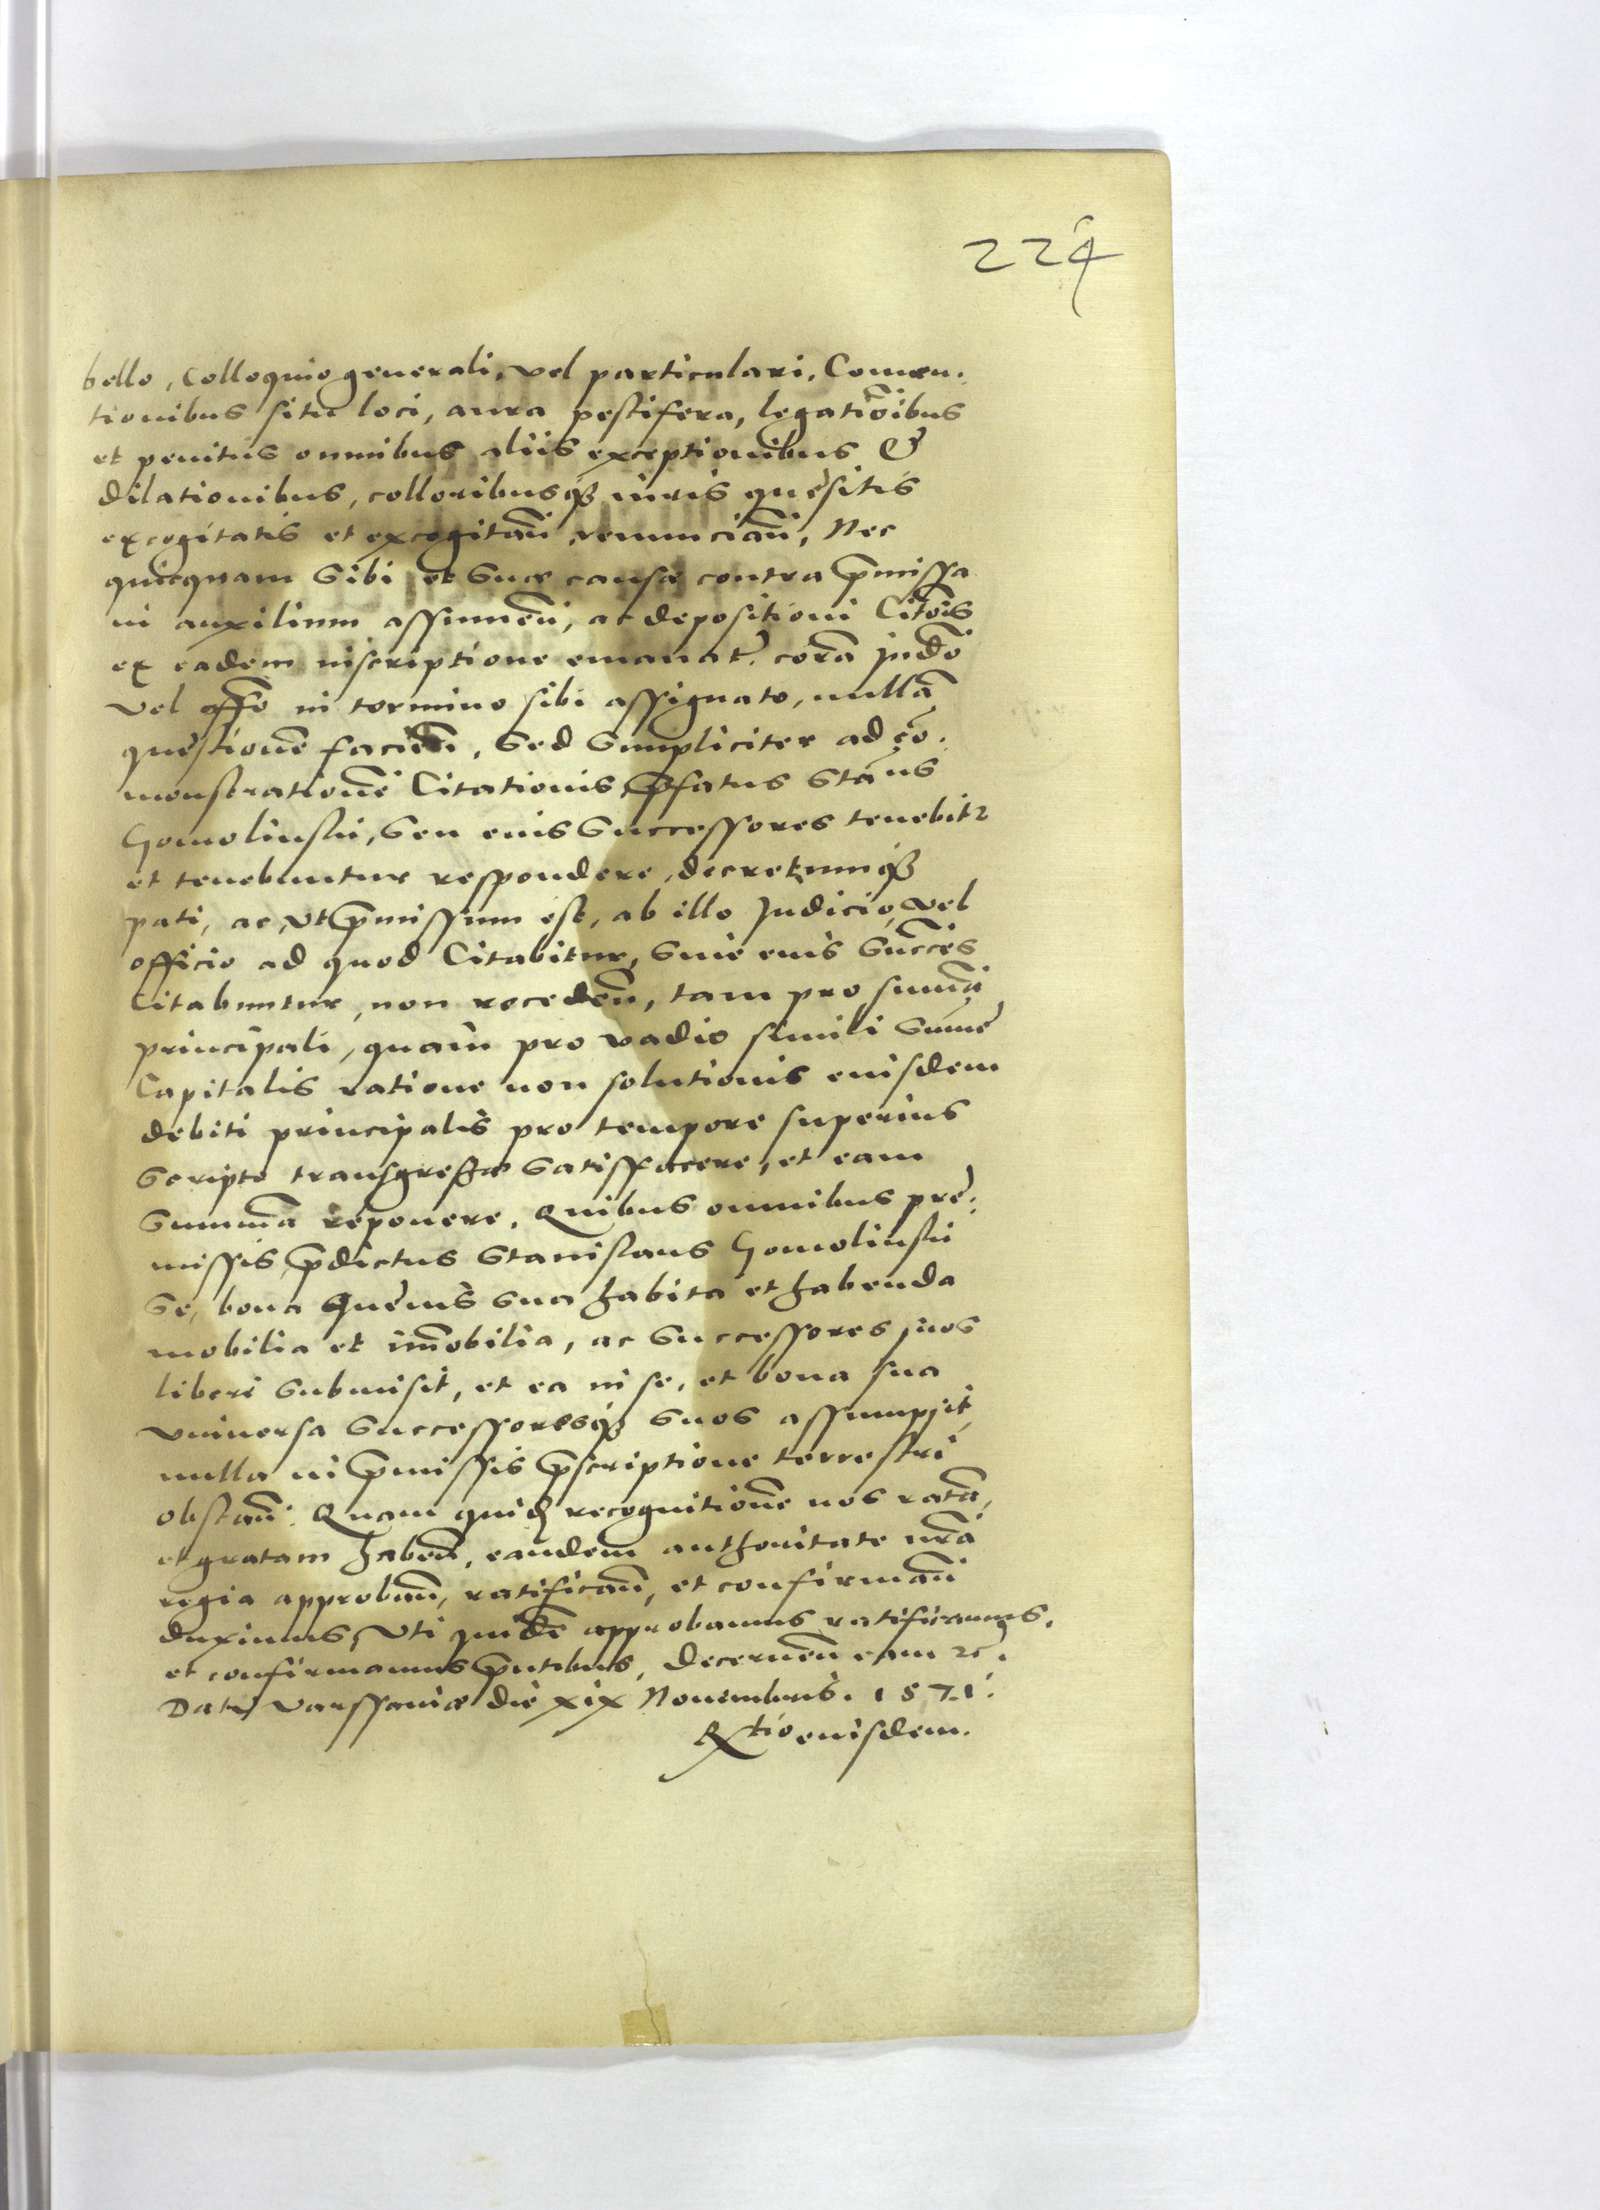 224
bello, Colloquio generali, vel particulari, Conuen.
tionibus situ loci, aura pestifera, legatiōibus
et penitus omnibus aliis exceptionibus &
dilationibus, colloribusq₃ iuris quesitis
excogitatis et excogitan̄, renuncian̄, Nec
quicquam sibi et suæ causæ contra p̄missa
in auxilium assumen̄, ac depositioni Citōis
ex eadem inscriptione emanat. corā judō
vel offo in termino sibi assignato, nullā
questionē facien̄, sed simpliciter ad cō.
monstrationē Citationis, p̄fatus Staus
Gomolinskii, seu eius successores tenebitr
et tenebuntur respondere, decretumq₃
pati, ac, vt p̄missum est, ab illo Judicio, vel
officio ad quod Citabitur, siue eius succēs
Citabuntur, non receden̄, tam pro summā
principali, quam pro vadio simili sumē
Capitalis ratione non solutionis eiusdem
debiti principalis pro tempore superius
scripto transgressæ satisfacere, et eam
summā reponere. Quibus omnibus pre.
missis, p̄dictus Stanislaus Gomolinskii
se, bona queuis sua habita et habenda
mobilia et im̄obilia, ac successores suos
liberi submisit, et ea in se, et bona sua
vniuersa successoresq₃ suos assumpsit
nulla in p̄missis p̄scriptione terrestri
obstan̄. Quam quid₃ recognitionē nos ratā,
et gratam haben̄, eandem authoritate nrā
regia approban̄, ratifican̄, et confirman̄
duximus, vti quidē approbamus ratificamus.
et confirmamus p̄ntibus, decernen̄ eam &c.
Dat. Varssauiæ die xix Nouembris. 1571.
Rtio eiusdem.